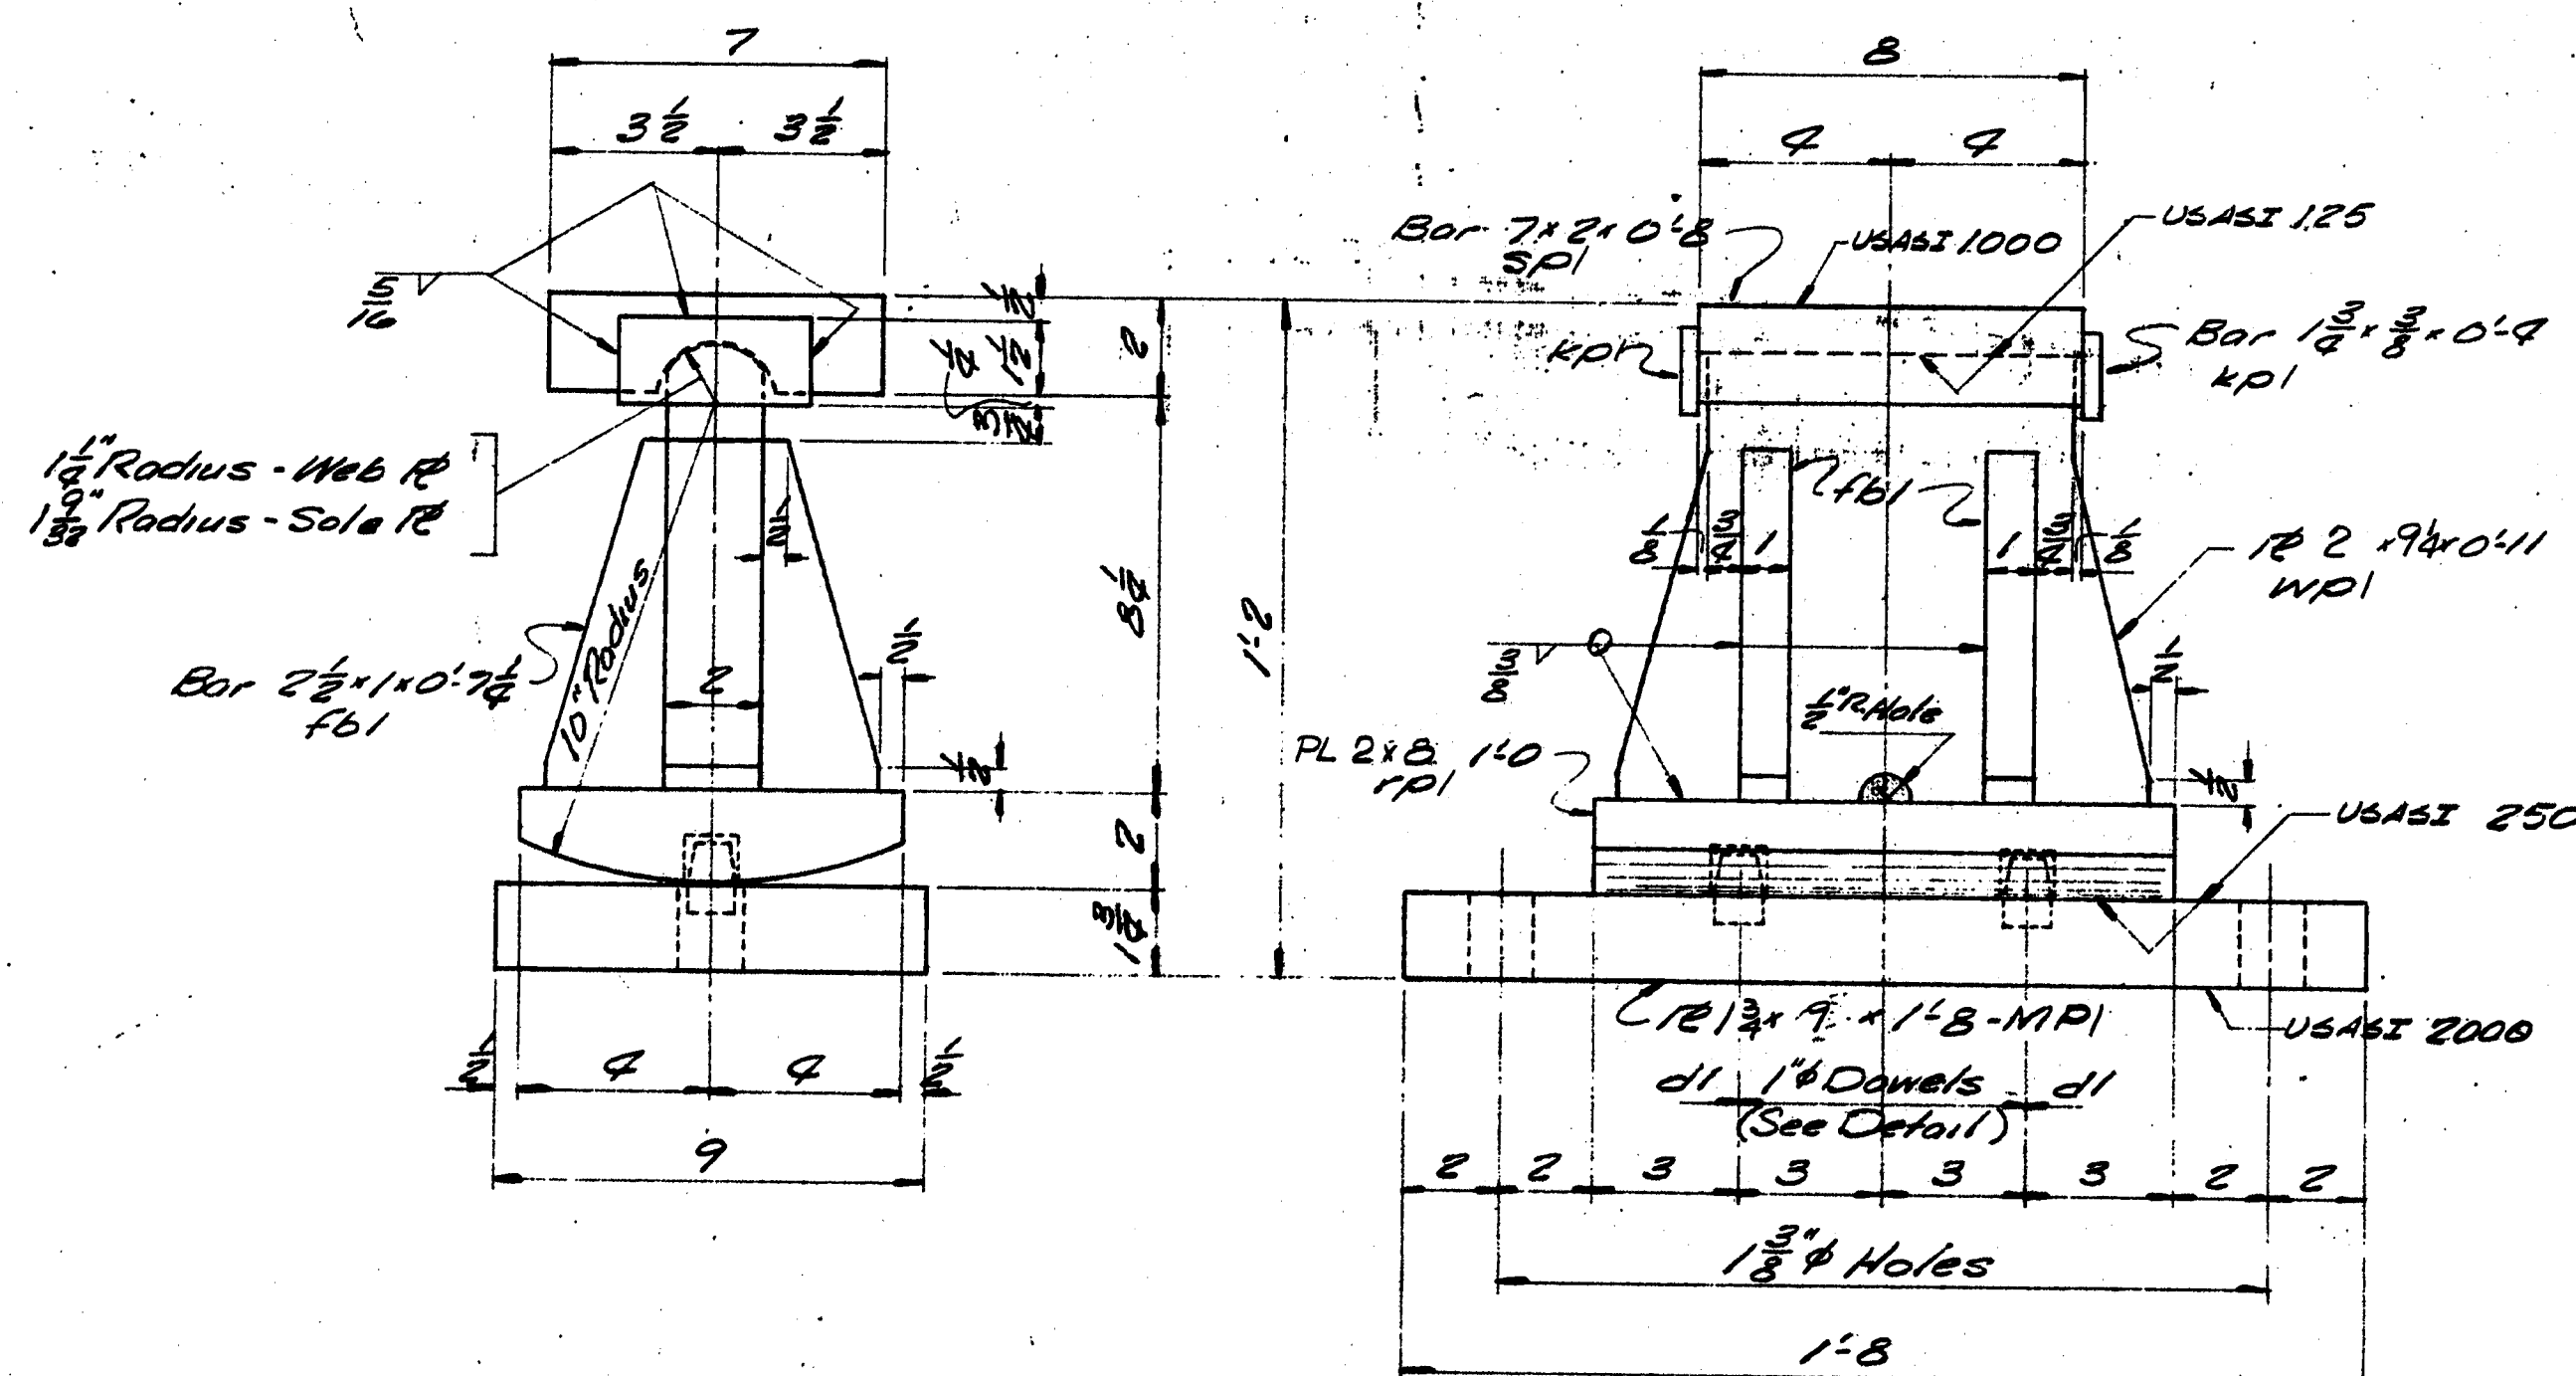 7
3 1/2 3 1/2
5/16
1/2
1 1/2
1/4
3/4
2
1 1/4" Radius - Web PL
1 9/32" Radius - Sole PL
1/2
10" Radius
Bar 2 1/2 x 1 x 0'-7 1/4
fb1
2
1/2
1/2
8 1/4
1'-2
2
1 3/4
1/2 4 4 1/2
9
8
4 4
Bar 7 x 2 x 0'-8
sp1
USASI 1000
USASI 125
kp1
Bar 1 3/4 x 3/8 x 0'-4
kp1
fb1
1/8 3/4 1 1 3/4 1/8
PL 2 x 9 1/4 x 0'-11
wp1
3/8
1/2" R. Hole
1/2
1/2
PL 2 x 8 1'-0
rp1
USASI 250
PL 1 3/4 x 9 x 1'-8 - MP1
USASI 2000
d1 1"φ Dowels d1
(See Detail)
2 2 3 3 3 3 2 2
1 3/8"φ Holes
1'-8